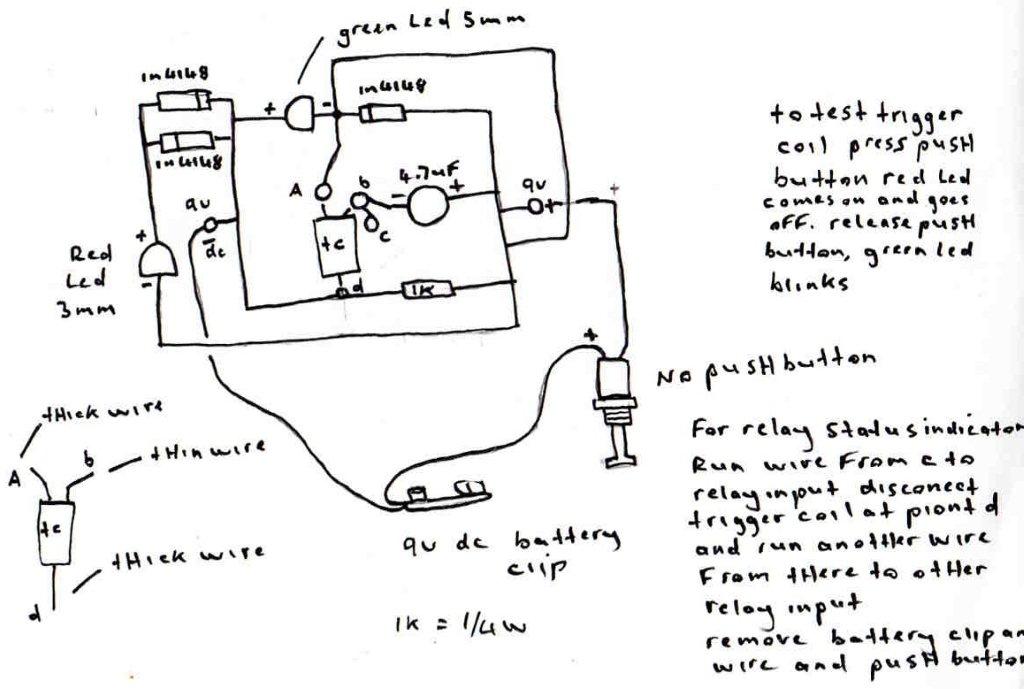 green Led 5mm
1n4148
1n4148
1n4148
+
-
A
b
c
4.7uF
-
+
9v
+
+
9v
-
dc
tc
d
1K
+
-
Red
Led
3mm
to test trigger
coil press push
button red Led
comes on and goes
off. release push
button, green led
blinks
+
NO push button
tHick wire
A
b
tHin wire
tc
tHick wire
d
9v dc battery
clip
1k = 1/4w
For relay status indicator
Run wire From c to
relay input disconect
trigger coil at piont d
and run anotHer wire
From tHere to other
relay input
remove battery clip an
wire and push button